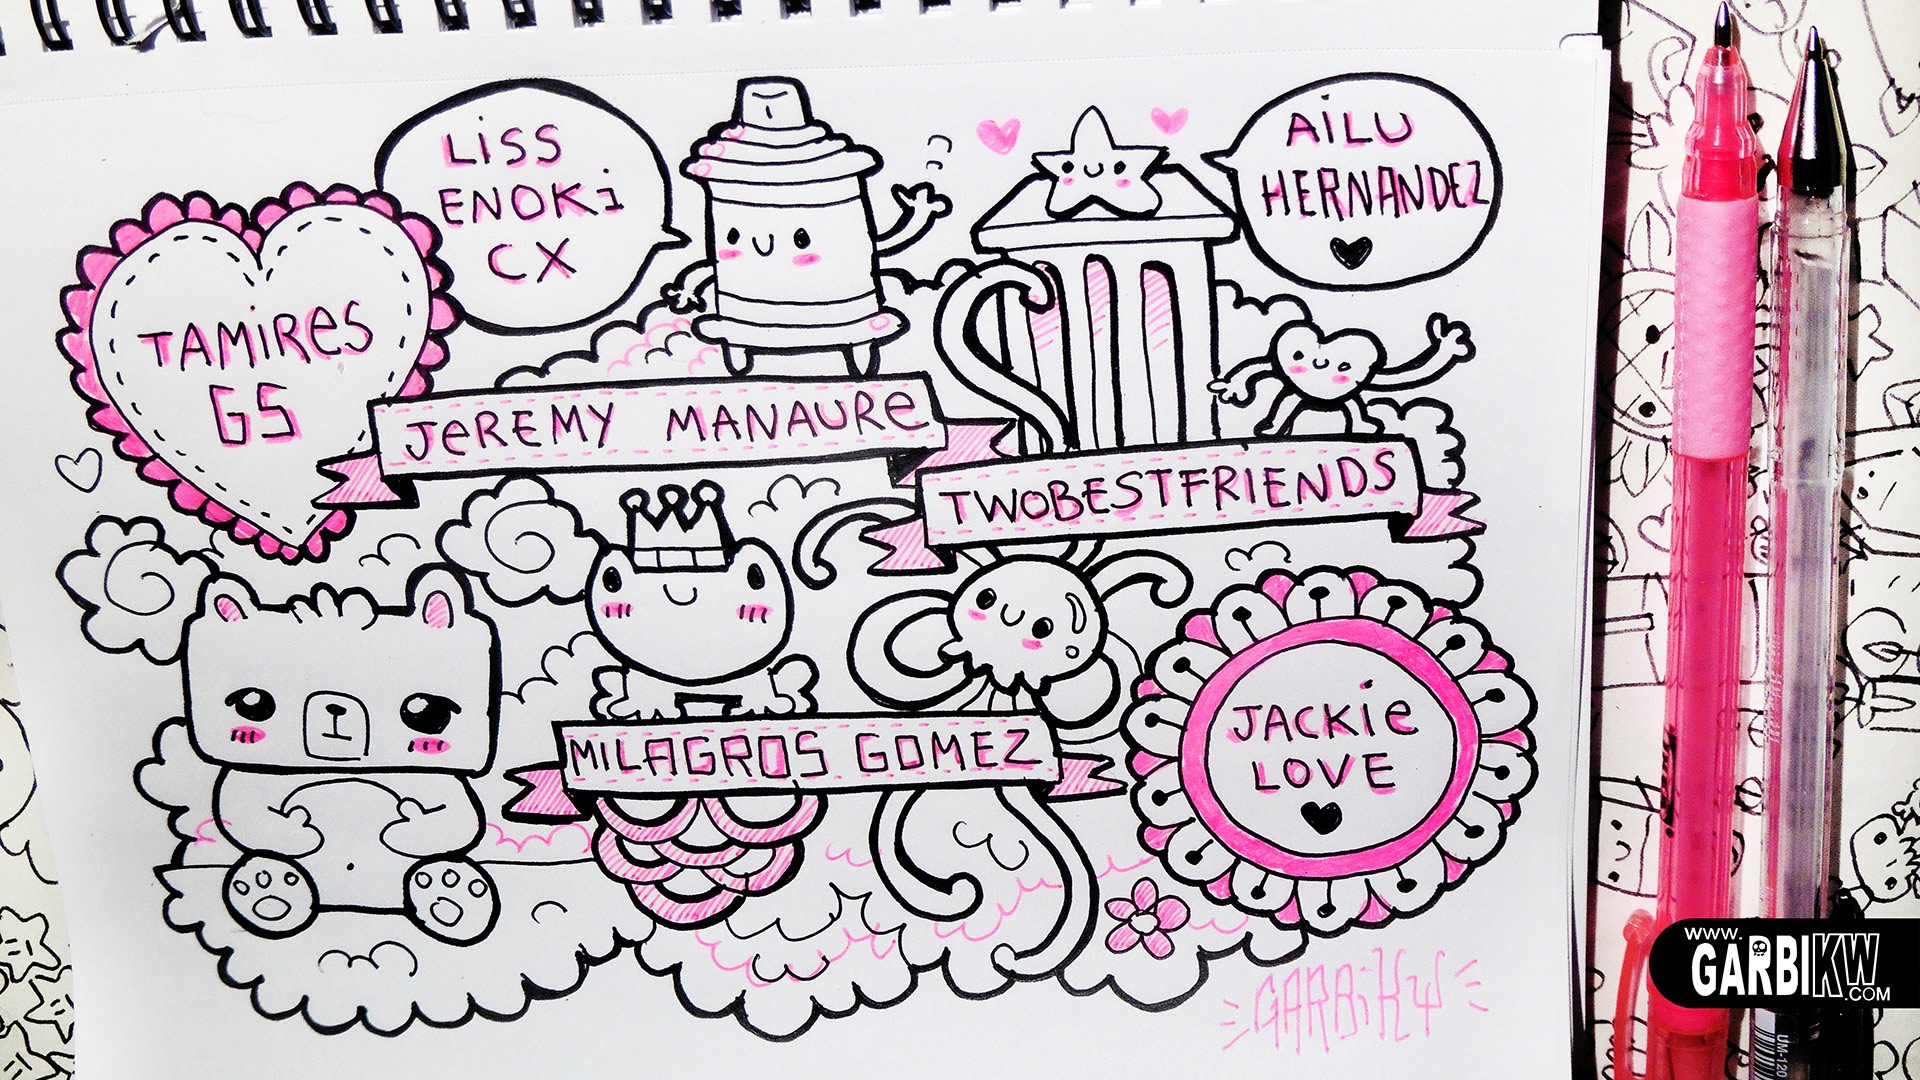 LiSS
ENOKi
CX
AiLU
HERNANDEZ
TAMiReS
GS
JeREMY MANAURe
TWOBESTFRIENDS
MILAGROS GOMEZ
JACKie
LOVE
GARBiKW
www.
GARBIKW
.COM
UM-120